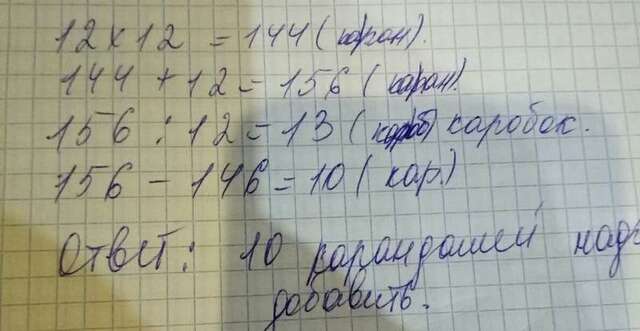 12 x 12 = 144 (каран).
144 + 12 = 156 (каран).
156 : 12 = 13 (короб) каробок.
156 - 146 = 10 (кар.)
Ответ: 10 карандашей над
добавить.